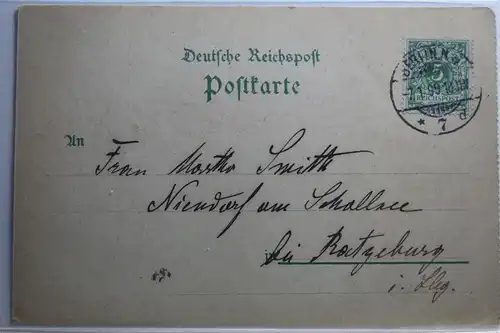 Deutsche Reichspost
Postkarte
BERLIN, N.
5
REICHSPOST
* 7 d
An
Frau Martha Smith
Niendorf am Schallsee
bei Ratzeburg
i. Lbg.